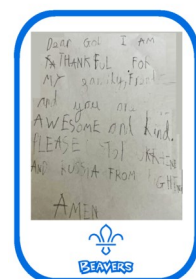 Dear God I AM
THANKFUL FOR
MY family, Friends
and you are
AWESOME and kind.
PLEASE UKRAINE
AND RUSSIA FROM
AMEN
BEAVERS